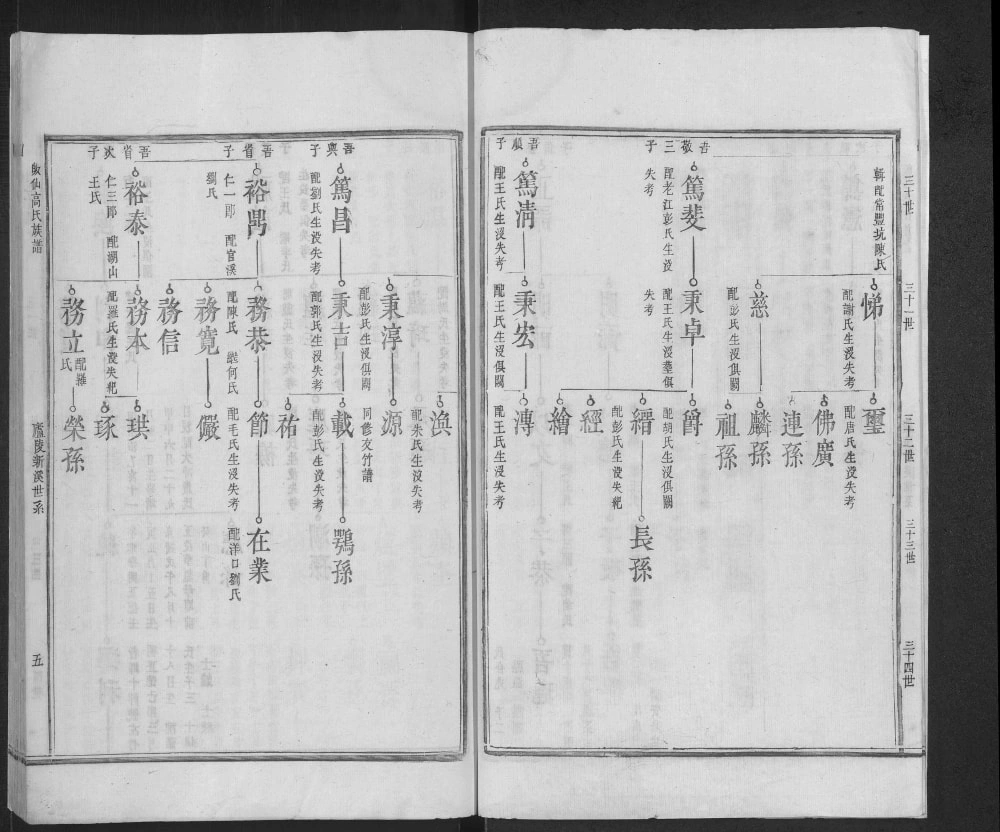 三十世
三十一世
三十二世
三十三世
三十四世
輯配常豐坑陳氏
悌
配謝氏生沒失考
璽
配唐氏生沒失考
佛廣
連孫
慈
配彭氏生沒俱闕
麟孫
祖孫
吉敬三子
篤斐
配老江彭氏生沒失考
秉卓
配王氏生沒塟俱失考
爵
配胡氏生沒俱闕
縉
配彭氏生沒失紀
長孫
經
繪
吾順子
篤淸
配王氏生沒失考
秉宏
配王氏生沒俱闕
溥
配王氏生沒失考
渙
配朱氏生沒失考
秉淳
配彭氏生沒俱闕
源
同修友竹譜
吾輿子
篤昌
配劉氏生沒失考
秉吉
配郭氏生沒失考
載
配彭氏生沒失考
鶚孫
祐
吾省子
裕禺
仁一郎 配官溪劉氏
務恭
配陳氏 繼何氏
節
配毛氏生沒失考
在業
配洋口劉氏
務寬
儼
務信
吾省次子
裕泰
仁三郎 配湖山王氏
務本
配羅氏生沒失紀
珙
琢
務立
配羅氏
榮孫
高氏族譜
廬陵新溪世系
五